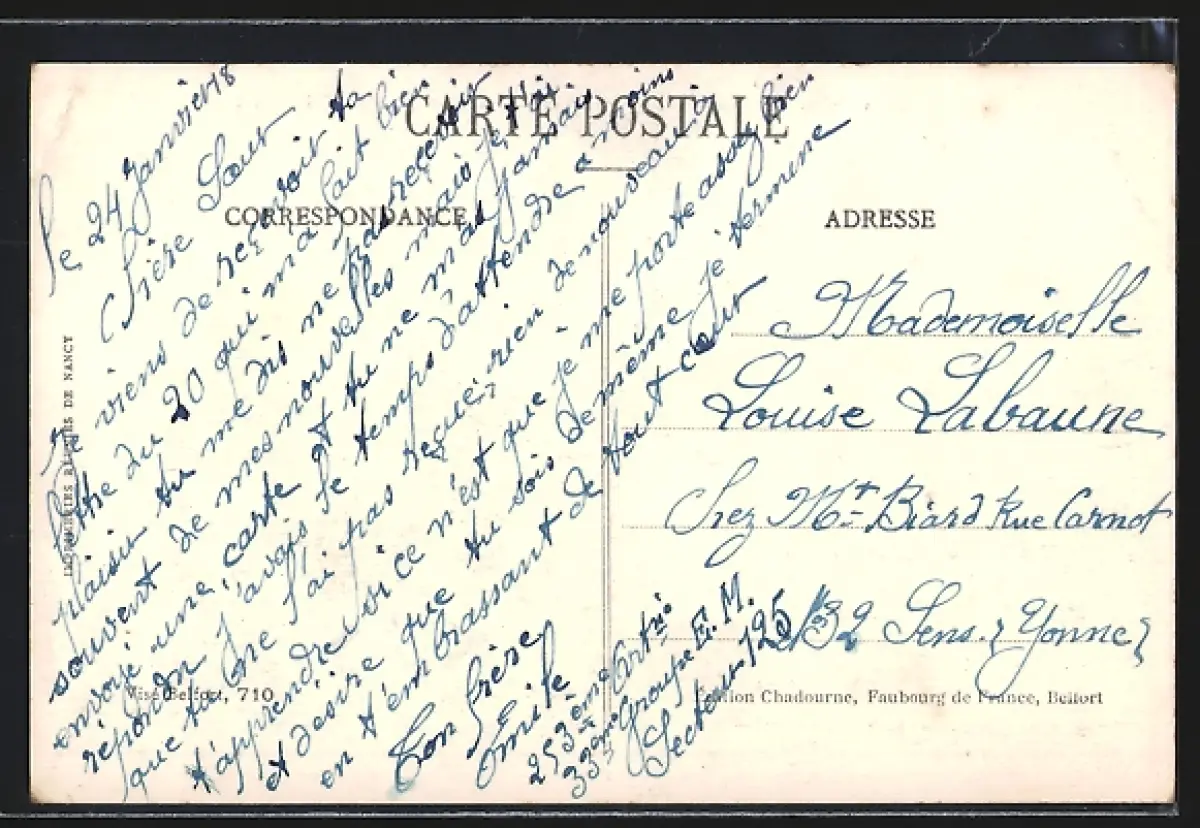 CARTE POSTALE
CORRESPONDANCE
ADRESSE
le 24 Janvier 18
Chère Sœur
Je viens de reçevoir ta
lettre du 20 qui m'a fait bien
plaisir tu me dis ne pas reçevoir
souvent de mes nouvelles mais je t'ai
envoyé une carte et tu ne m'as jamais
répondu J'avais le temps d'attendre à moins
que tu ne l'ai pas reçue, rien de nouveau à
t'apprendre ice n'est que je me porte assez bien
et désire que tu sois de même je termine
en t'embrassant de tout cœur
Ton frère
Emile
253ème Artrie
33ème Groupe E. M.
Secteur 125
Mademoiselle
Louise Labaune
Chez Mt Biard Rue Carnot
132 Sens. (Yonne)
IMPRIMERIES RÉUNIES DE NANCY
Visé Belfort, 710
Edition Chadourne, Faubourg de France, Belfort